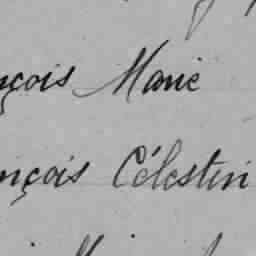 nçois Marie
nçois Célestin